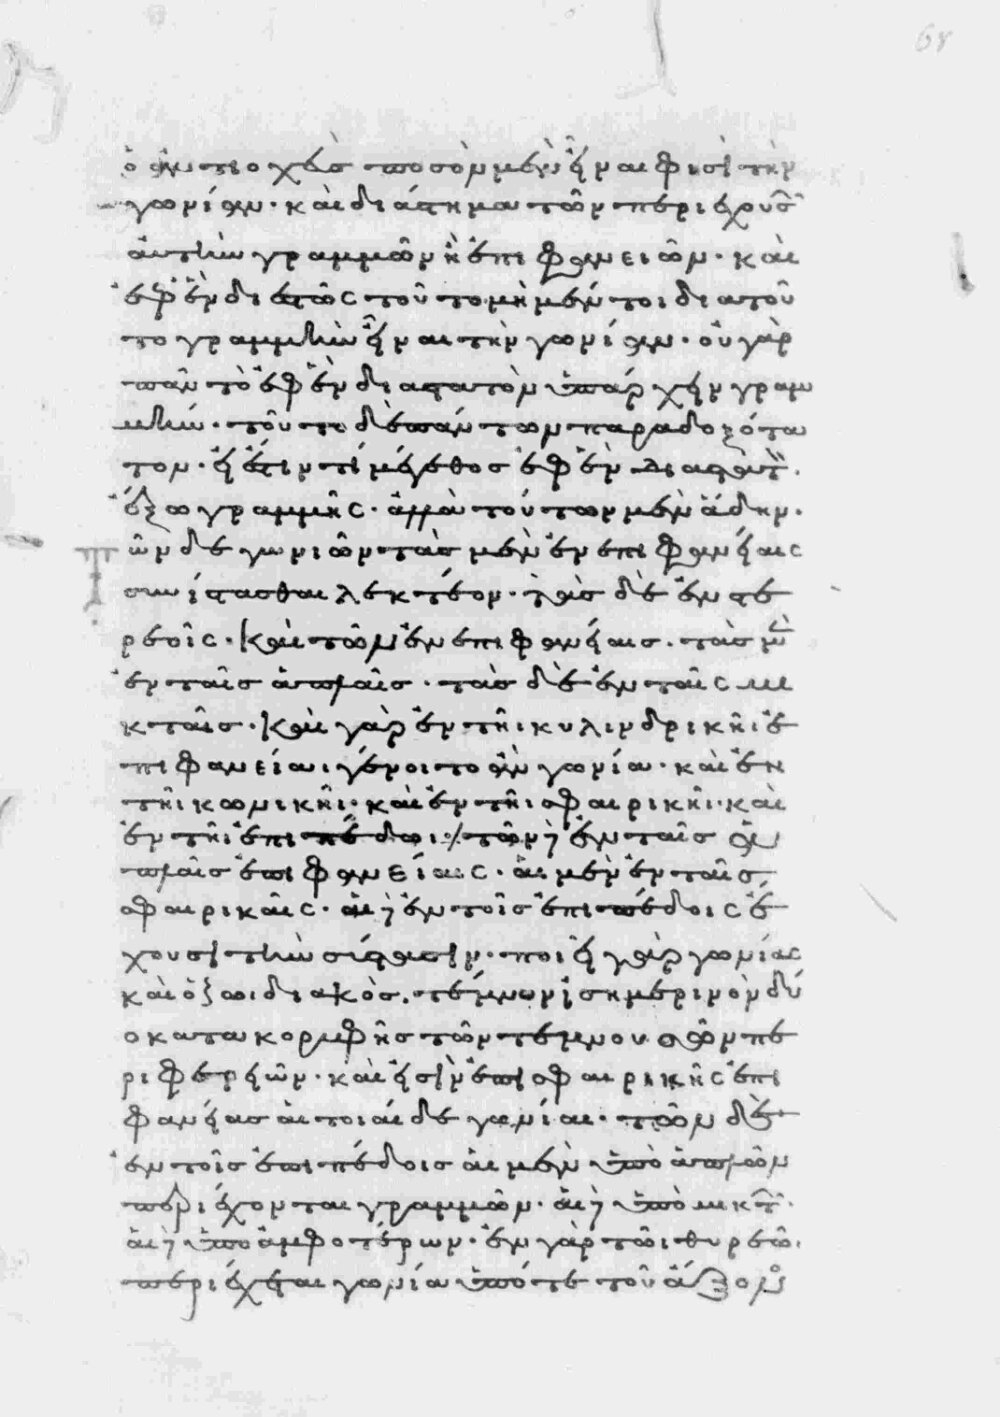 ὁ ἀντιοχεὺς ποσὸν μὲν εἶναι φησὶ τὴν
γωνίαν· καὶ διάστημα τῶν περιεχουσῶν
αὐτὴν γραμμῶν ἢ ἐπιφανειῶν· καὶ
ἐφ' ἓν διεστῶς τοῦτο μὴ μέντοι διὰ τοῦ
το γραμμὴν εἶναι τὴν γωνίαν· οὐ γὰρ
πᾶν τὸ ἐφ' ἓν διαστατὸν ὑπάρχειν γραμ
μήν· τοῦτο δὲ πάντων παραδοξότα
τον· εἰ ἔστιν τί μέγεθος ἐφ' ἓν διαστατὸν
ἔξω γραμμῆς· ἀλλὰ τούτων μὲν ἅδην·
Τῶν δὲ γωνιῶν τὰς μὲν ἐν ἐπιφανείαις
συνίστασθαι λεκτέον· τὰς δὲ ἐν στε
ρεοῖς· καὶ τῶν ἐν ἐπιφανείαις· τὰς μὲν
ἐν ταῖς ἁπλαῖς· τὰς δὲ ἐν ταῖς μι
κταῖς· καὶ γὰρ ἐν τῆι κυλινδρικῆι ἐ
πιφανείαι γένοιτο ἂν γωνία· καὶ ἐν
τῆι κωνικῆι· καὶ ἐν τῆι σφαιρικῆι· καὶ
ἐν τῆι ἐπιπέδωι· τῶν δὲ ἐν ταῖς ἁ
πλαῖς ἐπιφανείαις· αἱ μὲν ἐν ταῖς
σφαιρικαῖς· αἱ δὲ ἐν τοῖς ἐπιπέδοις ἔ
χουσι τὴν σύστασιν· ποιεῖ γὰρ γωνίας
καὶ ὁ ζωιδιακὸς· τέμνων ἰσημερινὸν δύ
ο κατὰ κορυφῆς τῶν τεμνουσῶν πε
ριφερειῶν· καὶ εἰσὶν ἐπὶ σφαιρικῆς ἐπι
φανείας αἱ τοιαίδε γωνίαι· τῶν δὲ
ἐν τοῖς ἐπιπέδοις αἱ μὲν ὑπὸ ἁπλῶν
περιέχονται γραμμῶν· αἱ δὲ ὑπὸ μικτῶν·
αἱ δὲ ὑπὸ ἀμφοτέρων· ἐν γὰρ τῶι θυρεῶι
περιέχεται γωνία ὑπό τε τοῦ ἄξονος